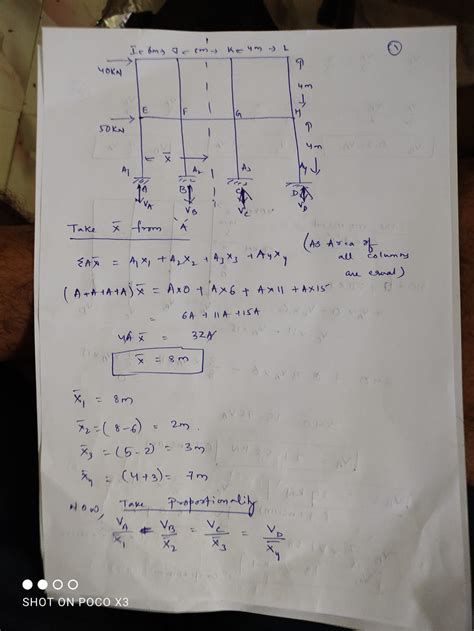 I ← 6m → J ← 5m → K ← 4m → L
(1)
40KN
4m
E F G H
50KN
4m
A1 ← x̄ → A2 A3 A4
A B C D
VA VB VC VD
Take x̄ from 'A'
ΣAx̄ = A1x1 + A2x2 + A3x3 + A4x4
(As Area of
all columns
are equal)
(A+A+A+A) x̄ = A×0 + A×6 + A×11 + A×15
= 6A + 11A + 15A
4A x̄ = 32A
x̄ = 8m
x̄1 = 8m
x̄2 = (8-6) = 2m.
x̄3 = (5-2) = 3m
x̄4 = (4+3) = 7m
Now, Take Proportionality
VA/x̄1 = VB/x̄2 = VC/x̄3 = VD/x̄4
SHOT ON POCO X3